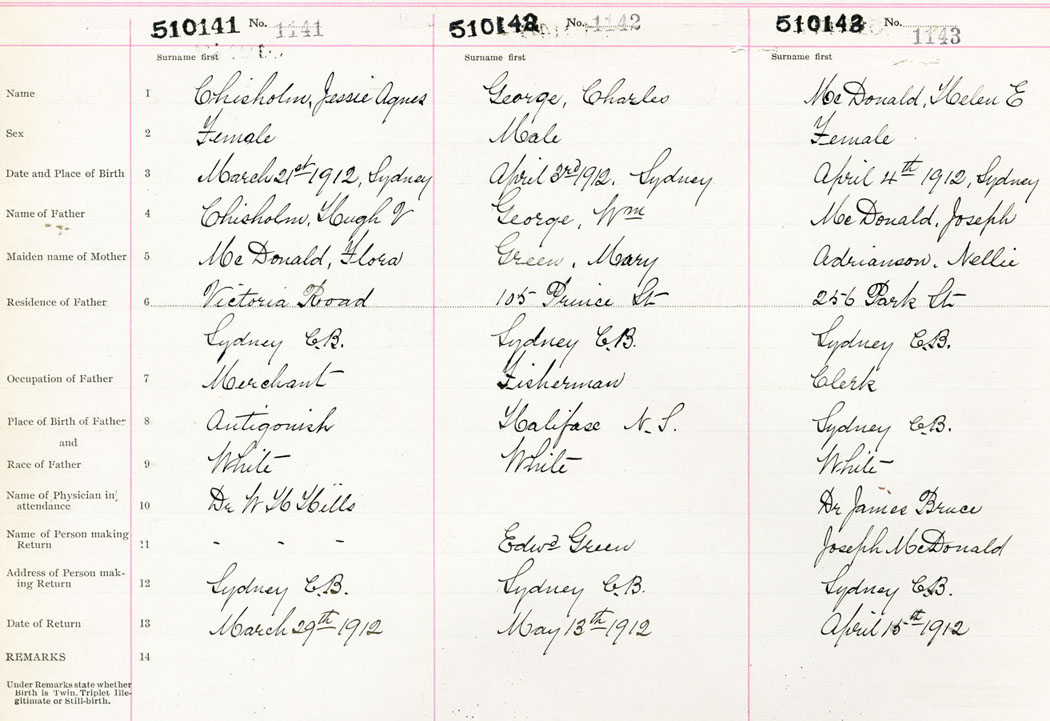 510141 No. 1141 510142 No. 1142 510143 No. 1143
Surname first Surname first Surname first
Name 1 Chisholm, Jessie Agnes George, Charles McDonald, Helen E
Sex 2 Female Male Female
Date and Place of Birth 3 March 21st 1912, Sydney April 3rd 1912. Sydney April 4th 1912, Sydney
Name of Father 4 Chisholm, Hugh V George, Wm McDonald, Joseph
Maiden name of Mother 5 McDonald, Flora Green, Mary Adrianson, Nellie
Residence of Father 6 Victoria Road 105 Prince St 256 Park St
Sydney C.B. Sydney C.B. Sydney C.B.
Occupation of Father 7 Merchant Fisherman Clerk
Place of Birth of Father 8 Antigonish Halifax N.S. Sydney C.B.
and
Race of Father 9 White White White
Name of Physician in
attendance 10 Dr W H Hills Dr James Bruce
Name of Person making
Return 11 - - - Edwd Green Joseph McDonald
Address of Person mak-
ing Return 12 Sydney C.B. Sydney C.B. Sydney C.B.
Date of Return 13 March 29th 1912 May 13th 1912 April 15th 1912
REMARKS 14
Under Remarks state whether
Birth is Twin, Triplet Ille-
gitimate or Still-birth.